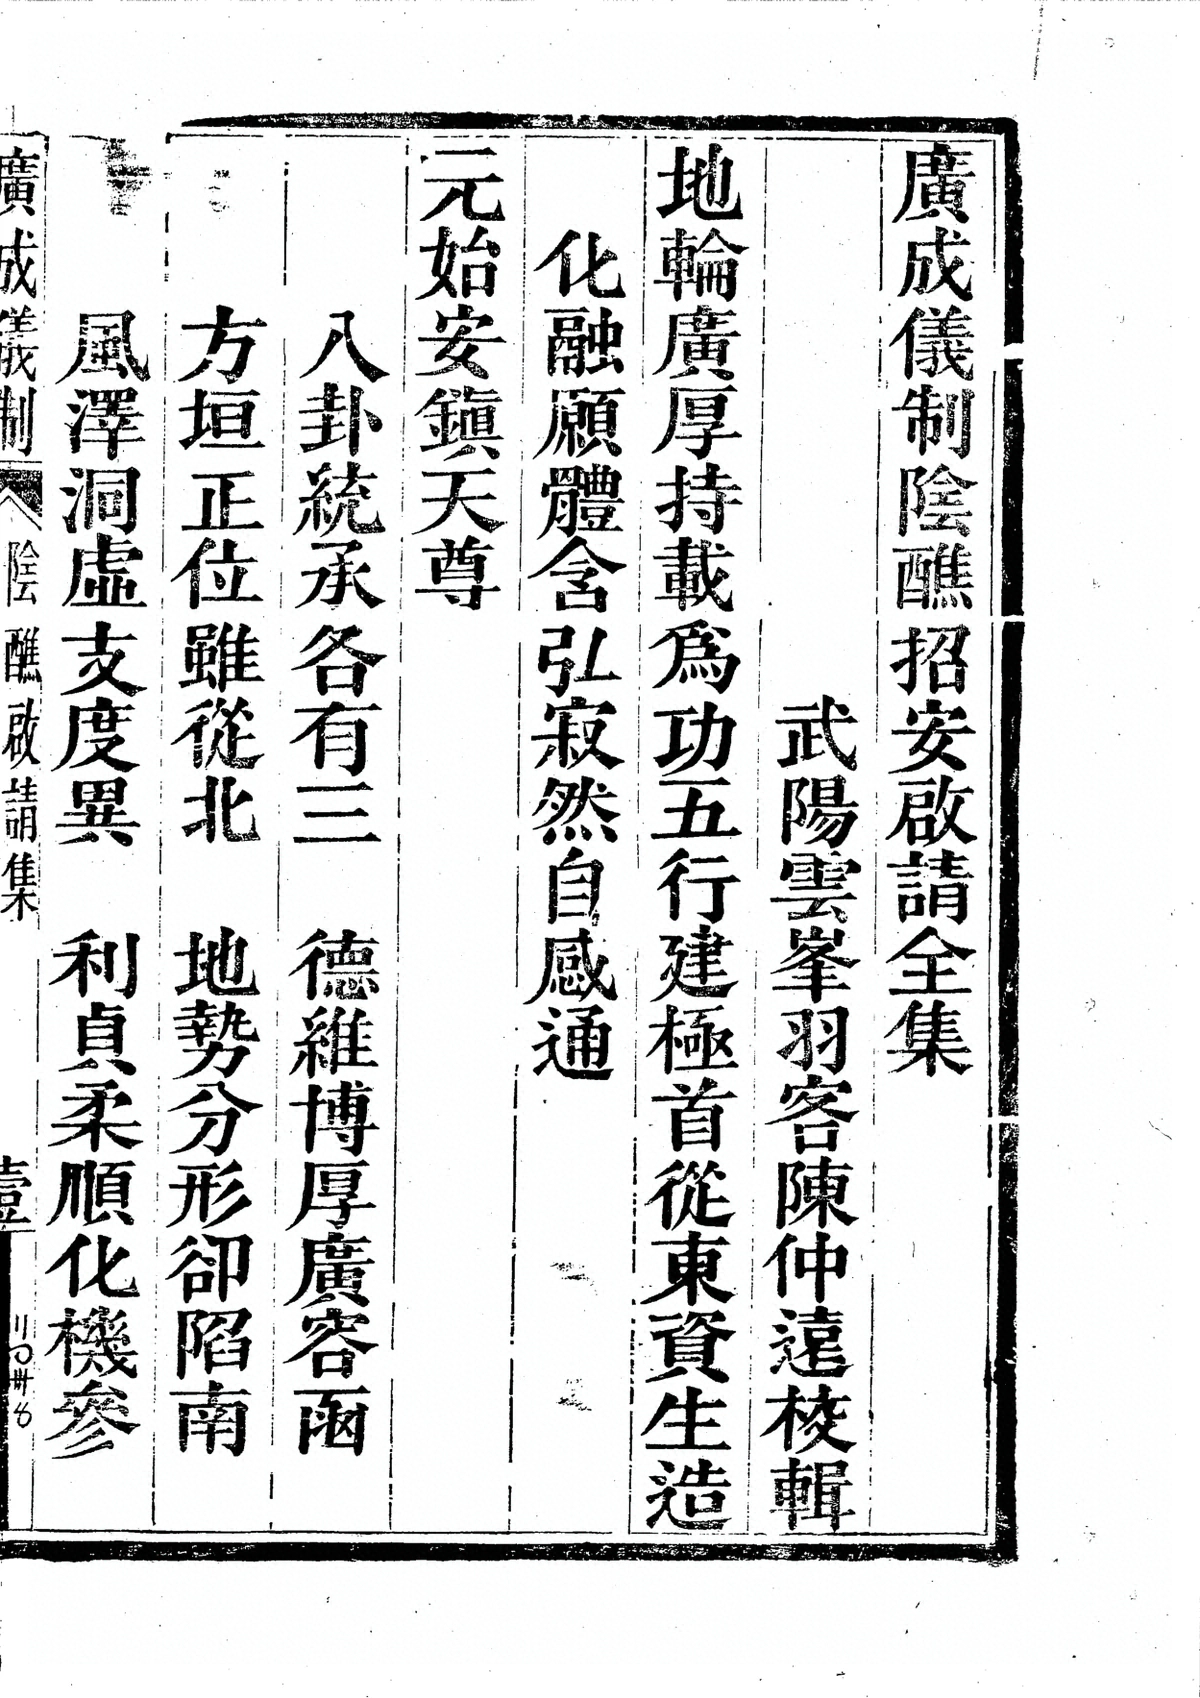 廣成儀制陰醮招安啟請全集
武陽雲峯羽客陳仲遠校輯
地輪廣厚持載爲功五行建極首從東資生造
化融願體含弘寂然自感通
元始安鎮天尊
八卦統承各有三 德維博厚廣容函
方垣正位雖從北 地勢分形卻陷南
風澤洞虛支度異 利貞柔順化機參
廣成儀制 陰醮啟請集 壹